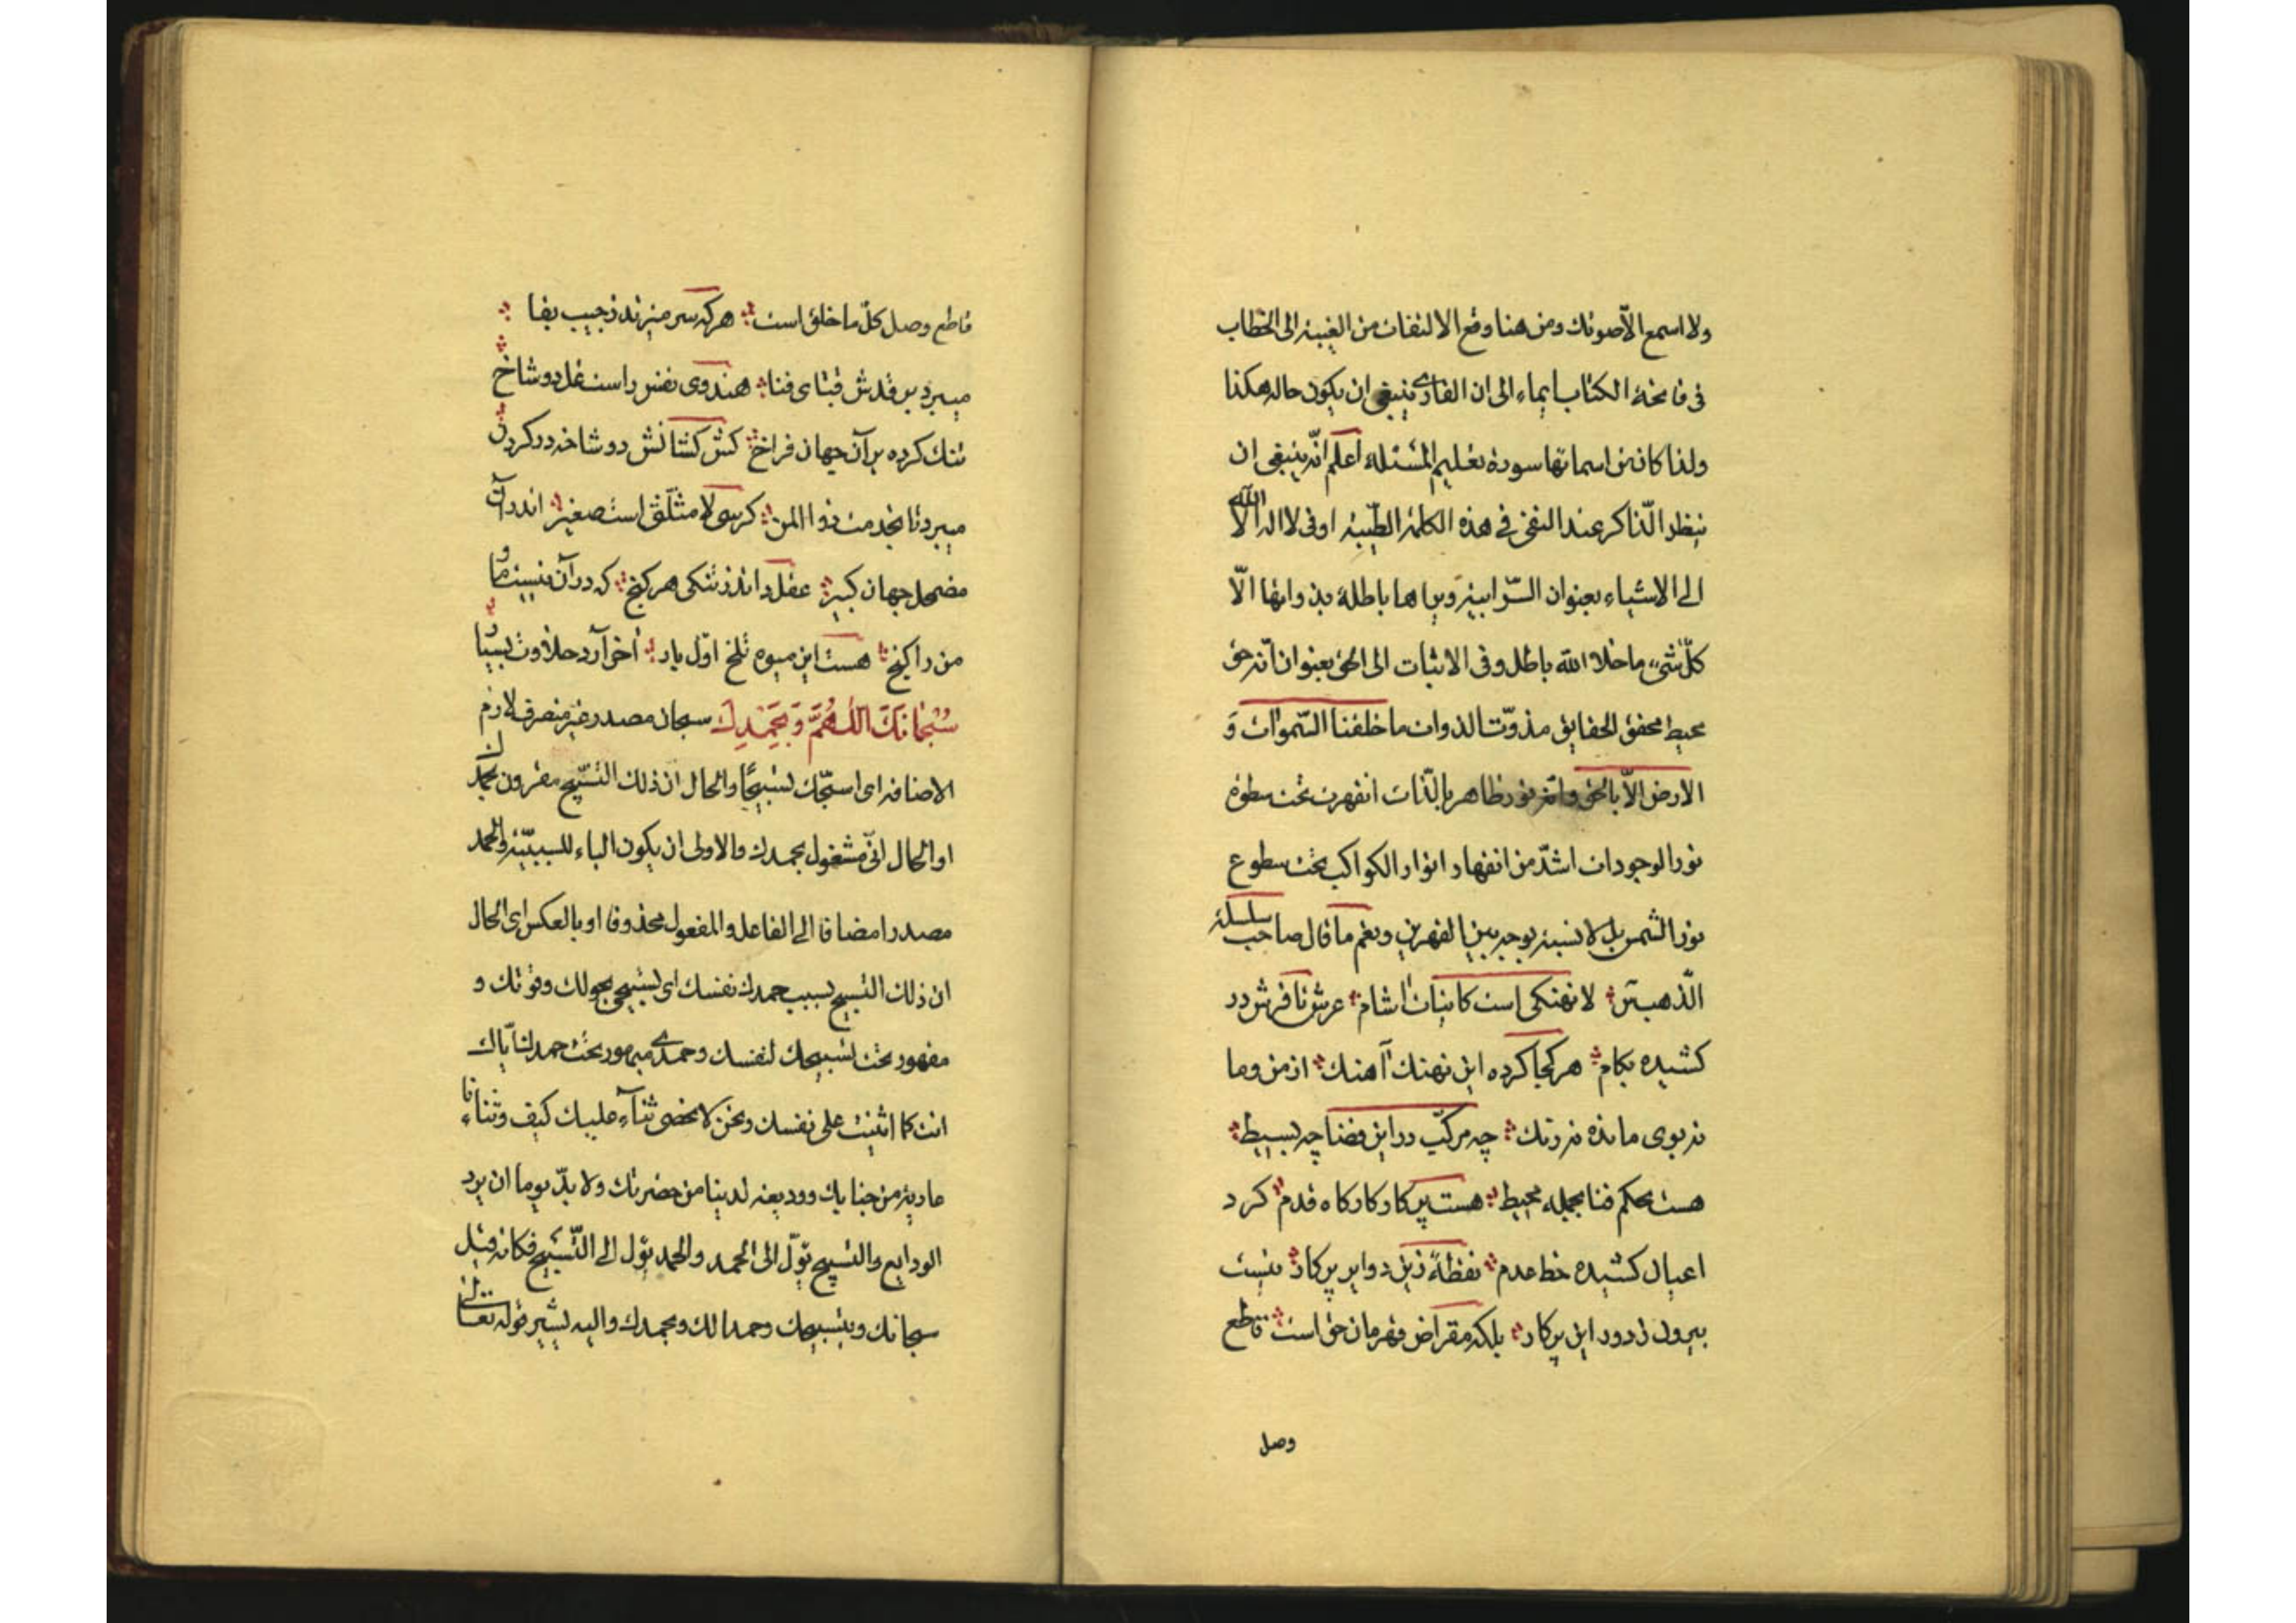 ولا اسمع الّا صوتك ومن هنا وقع الالتفات من الغيبة الى الخطاب
فى فاتحة الكتاب ايماء الى ان القارى ينبغى ان يكون حاله هكذا
ولذا كان من اسمائها سورة تعليم المسئلة اعلم انّه ينبغى ان
ينظر الذّاكر عند النفى فى هذه الكلمة الطّيبة او فى لا اله الّا اللّه
الى الاشياء بعنوان السّرابية وبما هى باطلة بذواتها الّا
كلّ شىء ما خلا اللّه باطل وفى الاثبات الى الحق بعنوان انّه حق
محيط محقق الحقايق مذوّت الذوات ما خلقنا السّموات وَ
الارض الّا بالحق وانّه نور ظاهر بالذّات انقهرت تحت سطوة
نور الوجودات اشدّ من انقهار انوار الكواكب تحت سطوع
نور الشمس بل لا نسبة بوجه بين القهرين ونعم ما قال صاحب سلسلة
الذّهب لا نهنكى است كاينات اشام عرش تا فرش در
كشيده بكام هر كجا كرده اين نهنك آهنك از من وما
نه بوى مانده نه رنك چه مركّب در اين فضا چه بسيط
هست حكم فنا بجمله محيط هست پركار كاركاه قدم كرد
اعيان كشيده خط عدم نقطهٔ زين دواير پركار نيست
بيرون ز دور اين پركار بلكه مقراض قهرمان حق است قاطع
وصل
قاطع وصل كلّ ما خلق است هر كه سر ميزند ز جيب بقا
ميبرد بر قدش قباى فنا هندوى نفس راست غل دو شاخ
تنك كرده بر آن جهان فراخ كش كشانش دو شاخه در كردن
ميبرد تا بخدمت ذو المن كرسى لا مثلّثى است صغير اندر آن
مضمحل جهان كبير عقل داند ز تنكى هر كنج كه در آن نيست ما و
من را كنج هست اين ميوه تلخ اوّل بار آخر آرد حلاوت بسيار
سُبْحَانَكَ اللّهُمَّ وَ بِحَمْدِكَ سبحان مصدر غير منصرف لازم
الاضافه اى اسبّحك تسبيحًا والحال ان ذلك التسبيح مقرون بحمدك
او الحال انّى مشغول بحمدك والاولى ان يكون الباء للسببيّة والحمد
مصدرا مضافا الى الفاعل والمفعول محذوفا او بالعكس اى الحال
ان ذلك التسبيح بسبب حمدك نفسك اى تسبيحى بحولك وقوّتك و
مقهور تحت تسبيحك لنفسك وحمدى مبهور تحت حمدك ايّاك
انت كما اثنيت على نفسك ونحن لا نحصى ثناء عليك كيف وثناءنا
عارية من جنابك ووديعة لدينا من حضرتك ولا بدّ يوما ان يرد
الودايع والتسبيح يؤل الى الحمد والحمد يؤل الى التّسبيح فكانه قيل
سبحانك وبتسبيحك وحمدا لك وبحمدك واليه يشير قوله تعالى